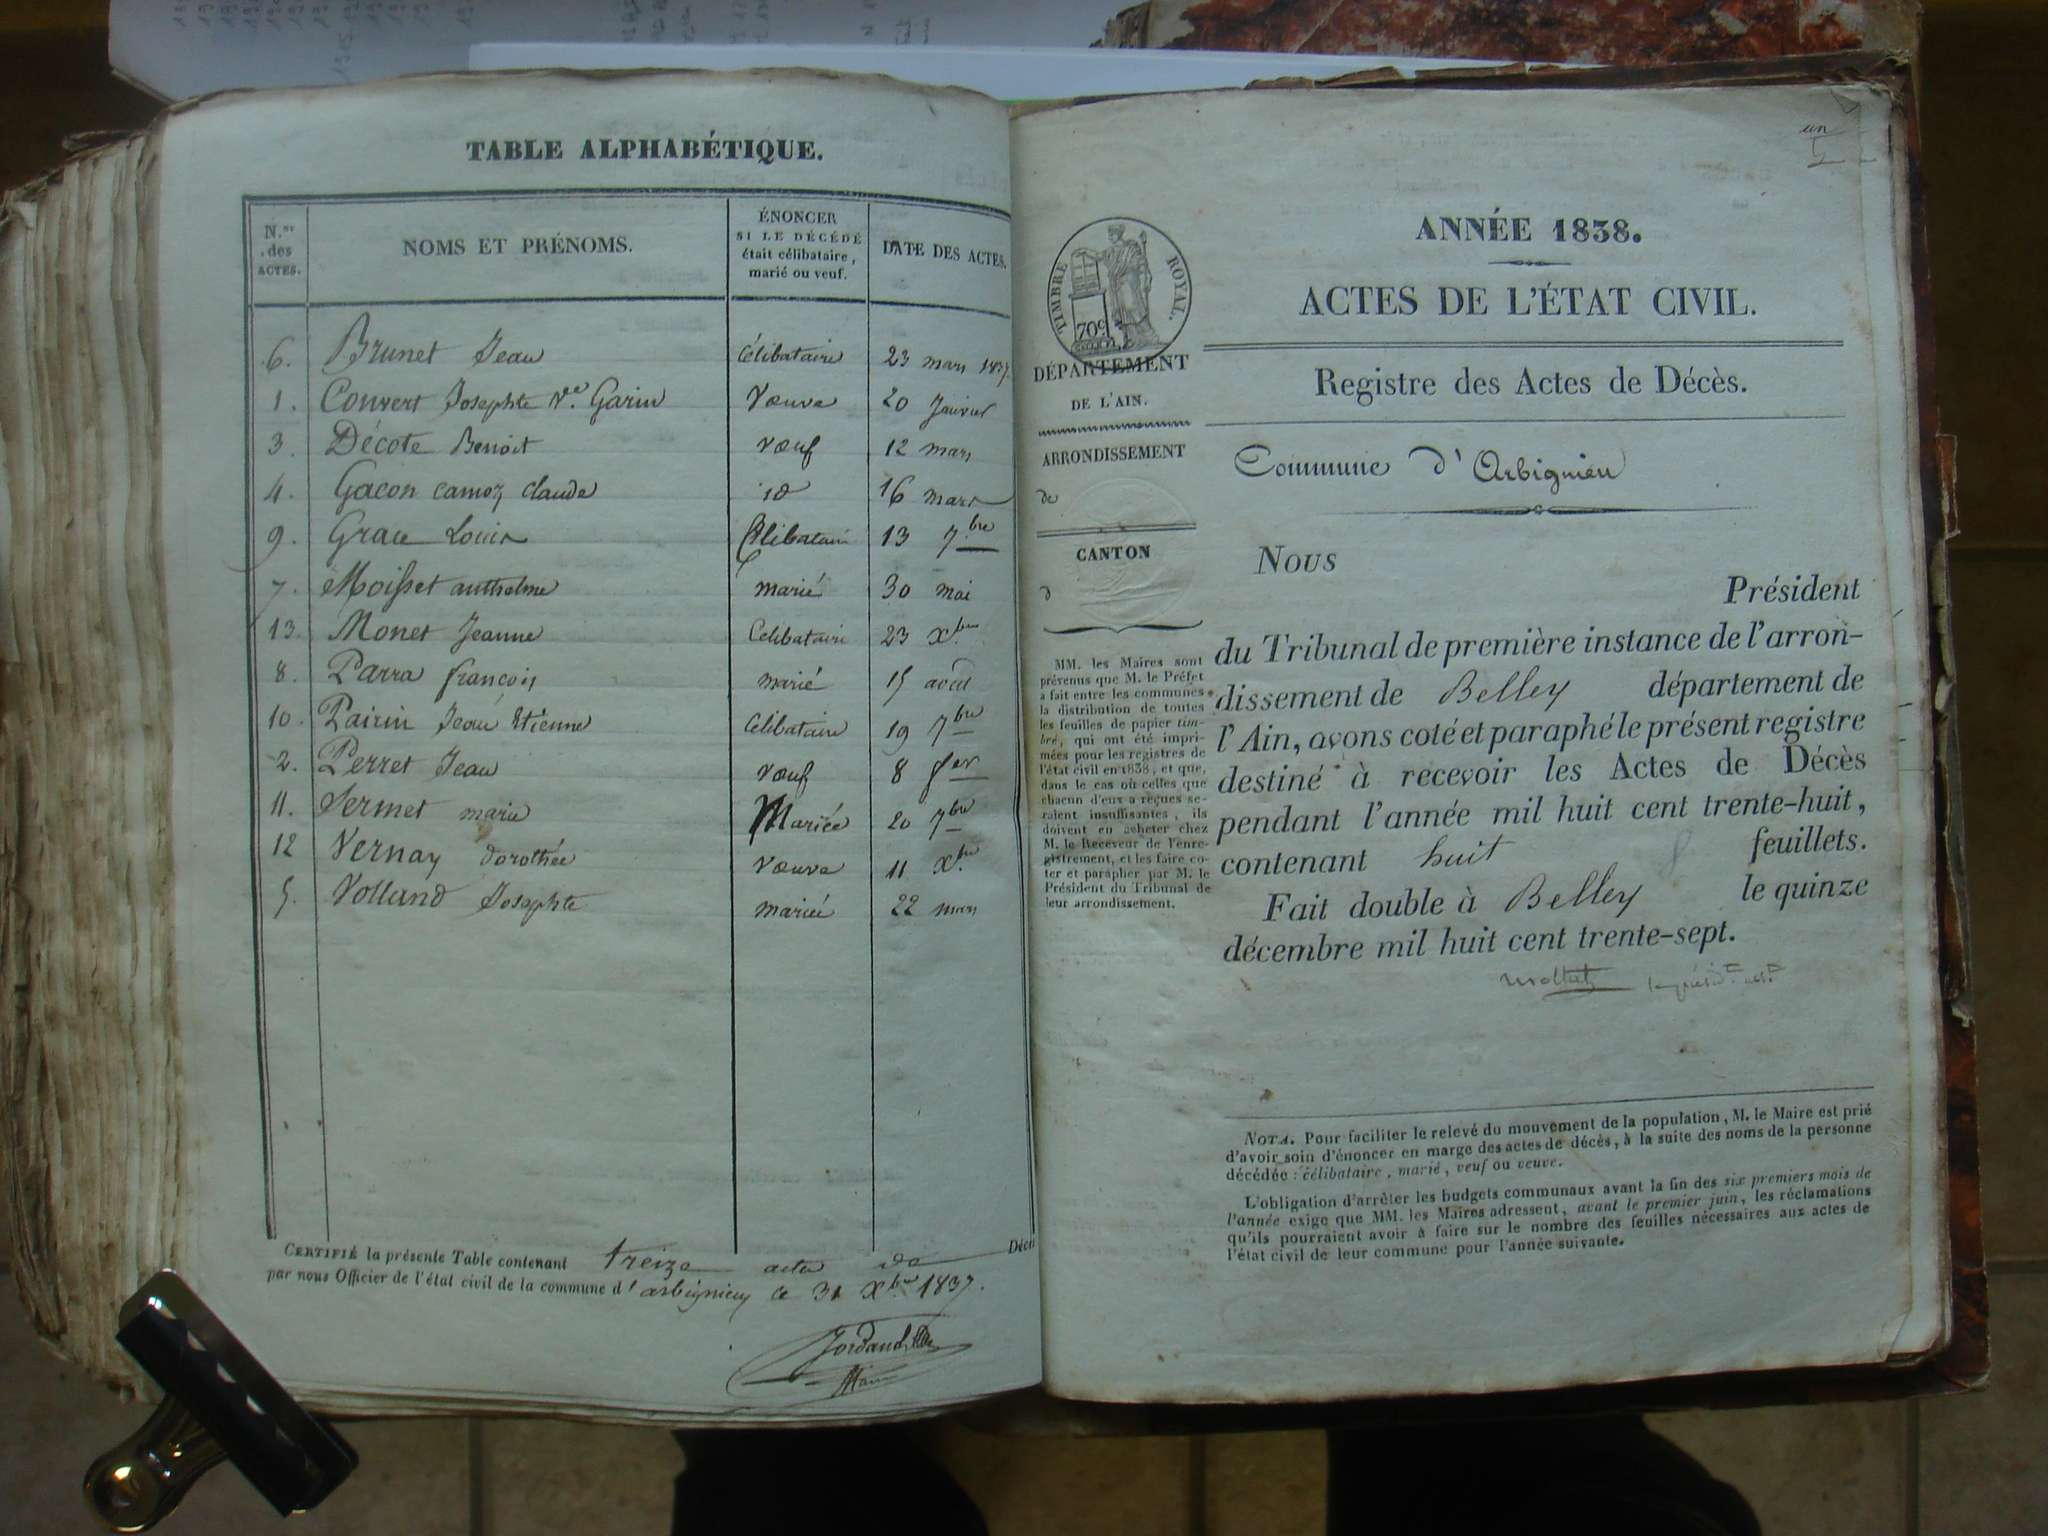 TABLE ALPHABÉTIQUE.
N.os des ACTES.
NOMS ET PRÉNOMS.
ÉNONCER
SI LE DÉCÉDÉ
était célibataire,
marié ou veuf.
DATE DES ACTES.
6. Brunet Jean Célibataire 23 mars 1837
1. Convert Josephte Ve. Garin Vœuve 20 Janvier
3. Décote Benoit vœuf 12 mars
4. Gacon camoz claude id 16 mars
9. Grace Louis Célibataire 13 7bre
7. Moisset anthelme marié 30 mai
13. Monet Jeanne Celibataire 23 Xbre
8. Parra françois marié 15 août
10. Pairin Jean Etienne Célibataire 19 7bre
2. Perret Jean vœuf 8 fer
11. Sermet marie Mariée 20 7bre
12 Vernay dorothée Vœuve 11 Xbre
5. Volland Josephte mariée 22 mars
CERTIFIÉ la présente Table contenant treize actes de Décè
par nous Officier de l'état civil de la commune d'arbignieu ce 31 Xbre 1837.
Maire
un
ANNÉE 1838.
ACTES DE L'ÉTAT CIVIL.
Registre des Actes de Décès.
TIMBRE ROYAL.
70c
DÉPARTEMENT
DE L'AIN.
ARRONDISSEMENT
de
CANTON
d
MM. les Maires sont
prévenus que M. le Préfet
a fait entre les communes
la distribution de toutes
les feuilles de papier tim-
bré, qui ont été impri-
mées pour les registres de
l'état civil en 1838, et que,
dans le cas où celles que
chacun d'eux a reçues se-
raient insuffisantes, ils
doivent en acheter chez
M. le Receveur de l'enre-
gistrement, et les faire co-
ter et parapher par M. le
Président du Tribunal de
leur arrondissement.
Commune d'Arbignieu
Nous
Président
du Tribunal de première instance de l'arron-
dissement de Belley département de
l'Ain, avons coté et paraphé le présent registre
destiné à recevoir les Actes de Décès
pendant l'année mil huit cent trente-huit,
contenant huit 8 feuillets.
Fait double à Belley le quinze
décembre mil huit cent trente-sept.
NOTA. Pour faciliter le relevé du mouvement de la population, M. le Maire est prié
d'avoir soin d'énoncer en marge des actes de décès, à la suite des noms de la personne
décédée : célibataire, marié, veuf ou veuve.
L'obligation d'arrêter les budgets communaux avant la fin des six premiers mois de
l'année exige que MM. les Maires adressent, avant le premier juin, les réclamations
qu'ils pourraient avoir à faire sur le nombre des feuilles nécessaires aux actes de
l'état civil de leur commune pour l'année suivante.